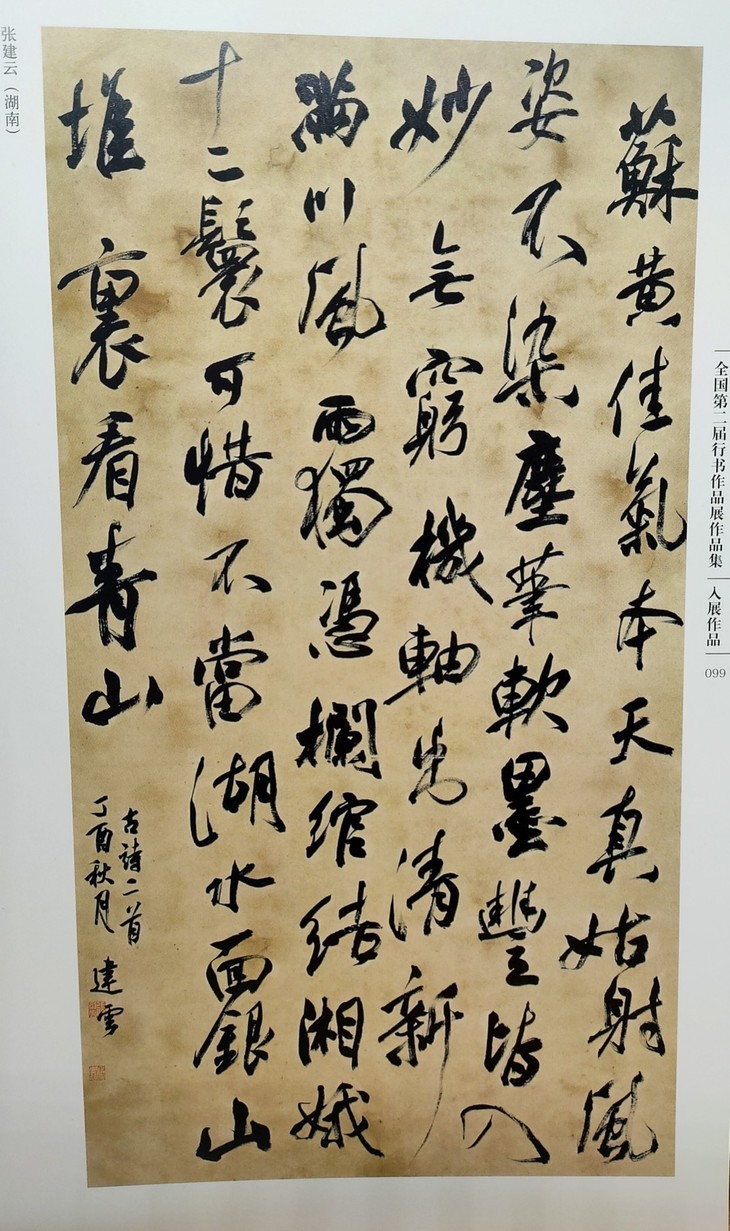 蘇黄佳氣本天真姑射風
姿不染塵筆軟墨豐皆入
妙無窮機軸出清新
滿川風雨獨憑欄綰結湘娥
十二鬟可惜不當湖水面銀山
堆裏看青山
古詩二首
丁酉秋月 建雲
张建云（湖南）
全国第二届行书作品展作品集
入展作品
099